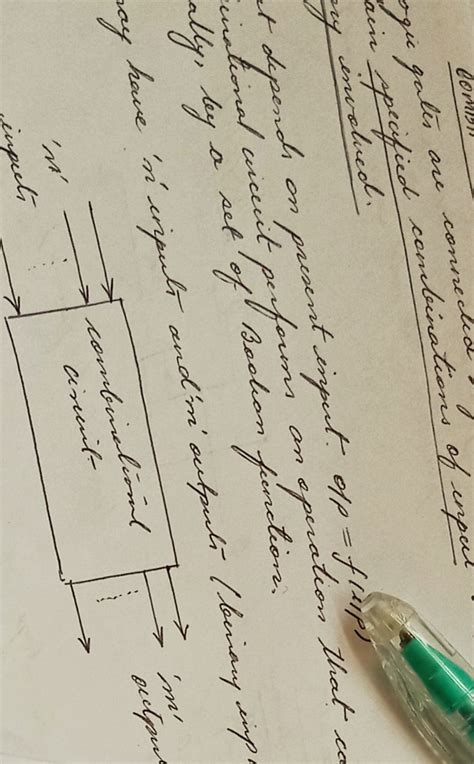 logic gates are connected
specified combinations of input
involved.
depends on present input. O/P = f(I/P)
circuit performs an operation that
by a set of Boolean function.
may have 'n' inputs and 'm' outputs (binary
'n'
inputs
combinational
circuit
'm'
outputs